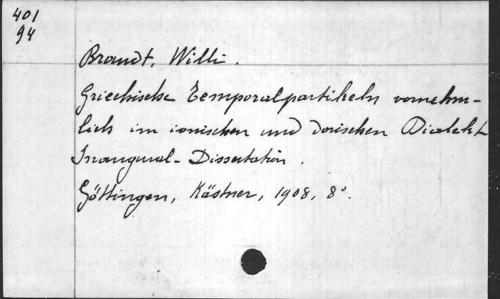 401
94
Brandt, Willi.
Griechische Temporalpartikeln vornehm-
lich im ionischen und dorischen Dialekt
Inaugural-Dissertation.
Göttingen, Kästner, 1908, 8°.